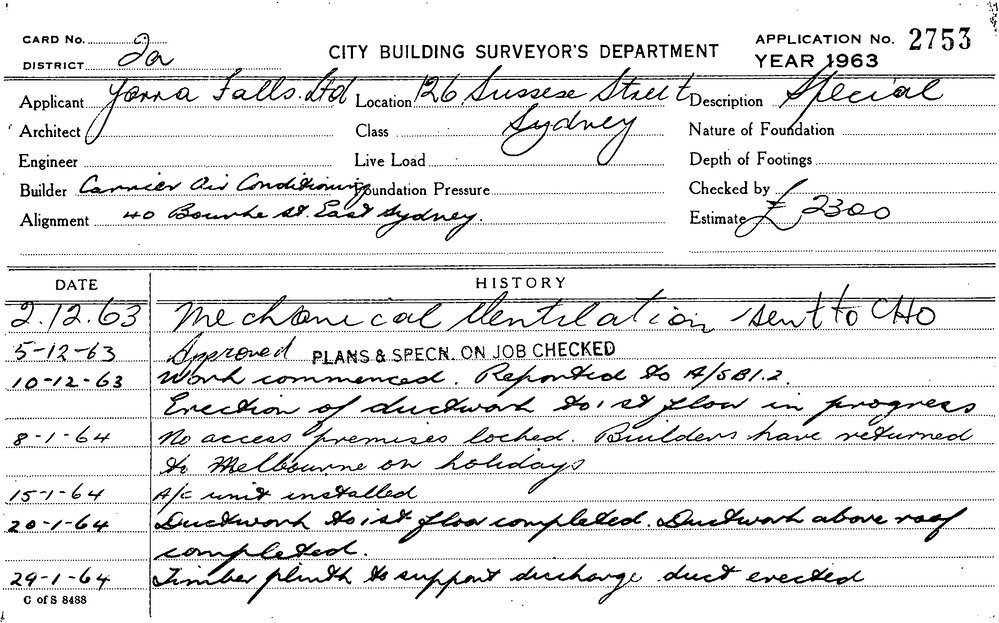 CARD No. 2a
DISTRICT
CITY BUILDING SURVEYOR'S DEPARTMENT
APPLICATION No. 2753
YEAR 1963
Applicant Yarra Falls. Ltd Location 126 Sussex Street Description Special
Architect Class Sydney Nature of Foundation
Engineer Live Load Depth of Footings
Builder Carrier Air Conditioning Foundation Pressure Checked by
Alignment 40 Bourke st. East Sydney. Estimate £ 2300
DATE HISTORY
2.12.63 Mechanical Ventilation sent to CHO
5-12-63 Approved PLANS & SPECN. ON JOB CHECKED
10-12-63 Work commenced. Reported to A/SBI.2.
Erection of ductwork to 1st floor in progress
8-1-64 No access premises locked. Builders have returned
to Melbourne on holidays
15-1-64 A/c unit installed
20-1-64 Ductwork to 1st floor completed. Ductwork above roof
completed.
29-1-64 Timber plinth to support discharge duct erected
C of S 8488